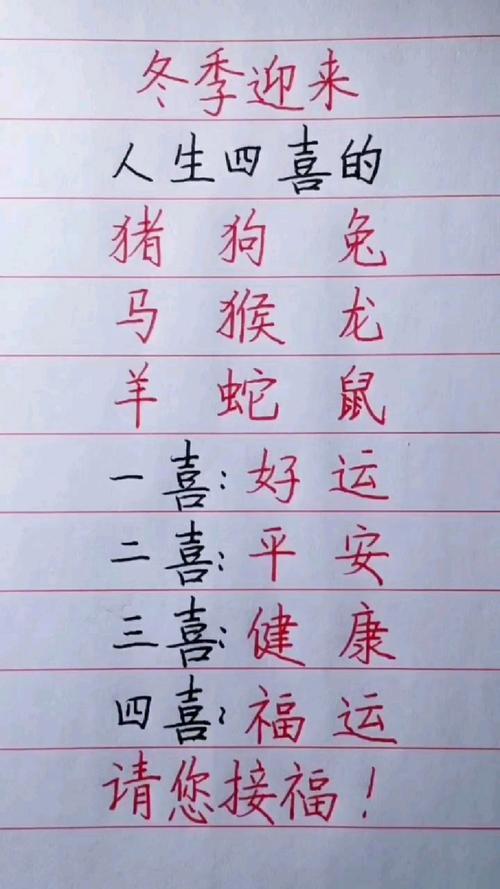 冬季迎来
人生四喜的
猪 狗 兔
马 猴 龙
羊 蛇 鼠
一喜:好运
二喜:平安
三喜:健康
四喜:福运
请您接福!